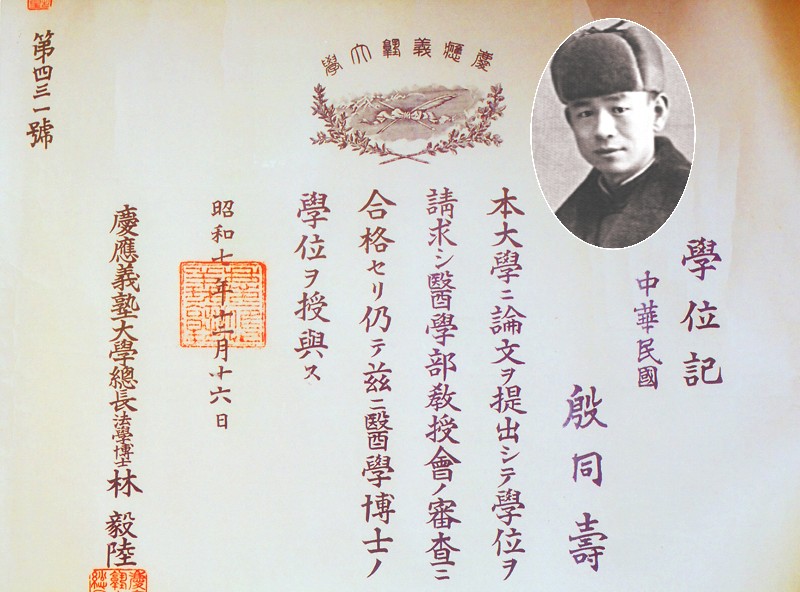 學位記
中華民國
殷同壽
慶應義塾大學
本大學ニ論文ヲ提出シテ學位ヲ
請求シ醫學部敎授會ノ審査ニ
合格セリ仍テ茲ニ醫學博士ノ
學位ヲ授與ス
昭和七年十一月十六日
慶應義塾大學總長法學博士林毅陸
第四三一號